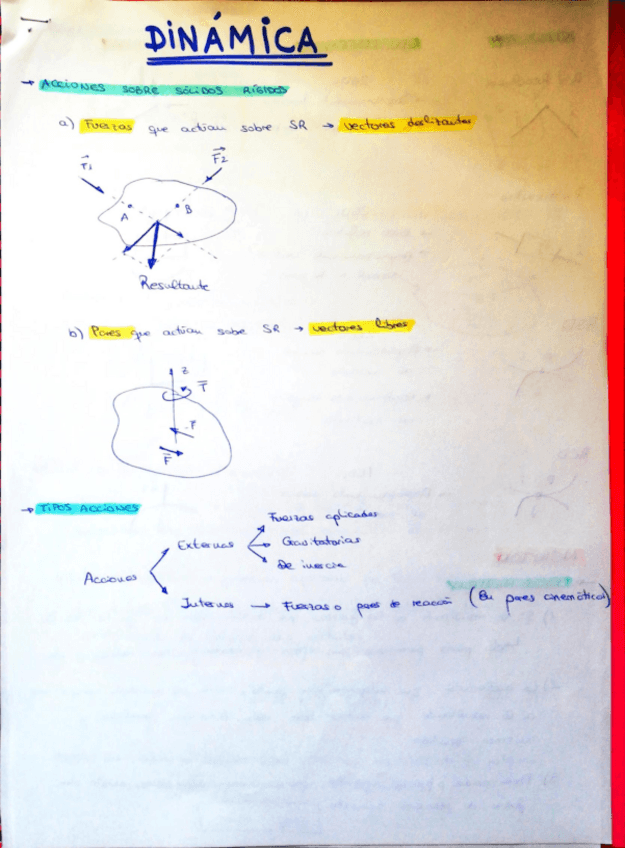 DINÁMICA
→ ACCIONES SOBRE SÓLIDOS RÍGIDOS
a) Fuerzas que actúan sobre SR → vectores deslizantes
F1
F2
A
B
Resultante
b) Pares que actúan sobre SR → vectores libres
z
T
F
F
→ TIPOS ACCIONES
Fuerzas aplicadas
Externas
Gravitatorias
De inercia
Acciones
Internas → Fuerzas o pares de reacción (En pares cinemáticos)